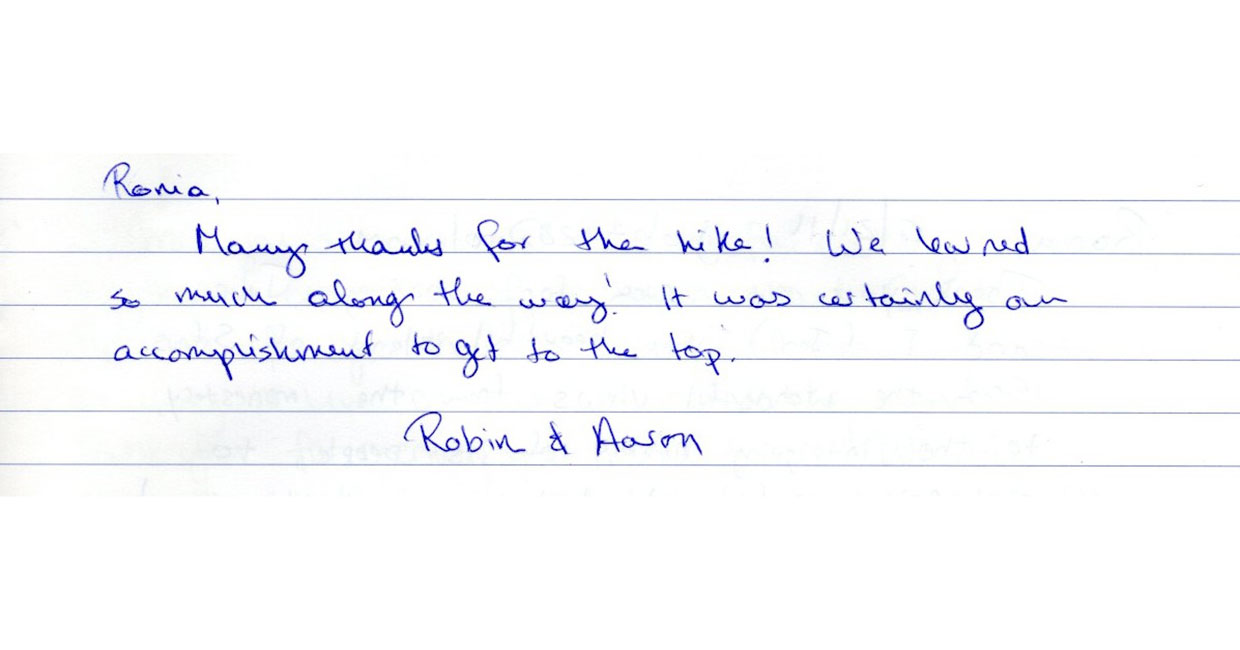 Rania,
Many thanks for the hike! We learned
so much along the way! It was certainly an
accomplishment to get to the top.
Robin & Aaron